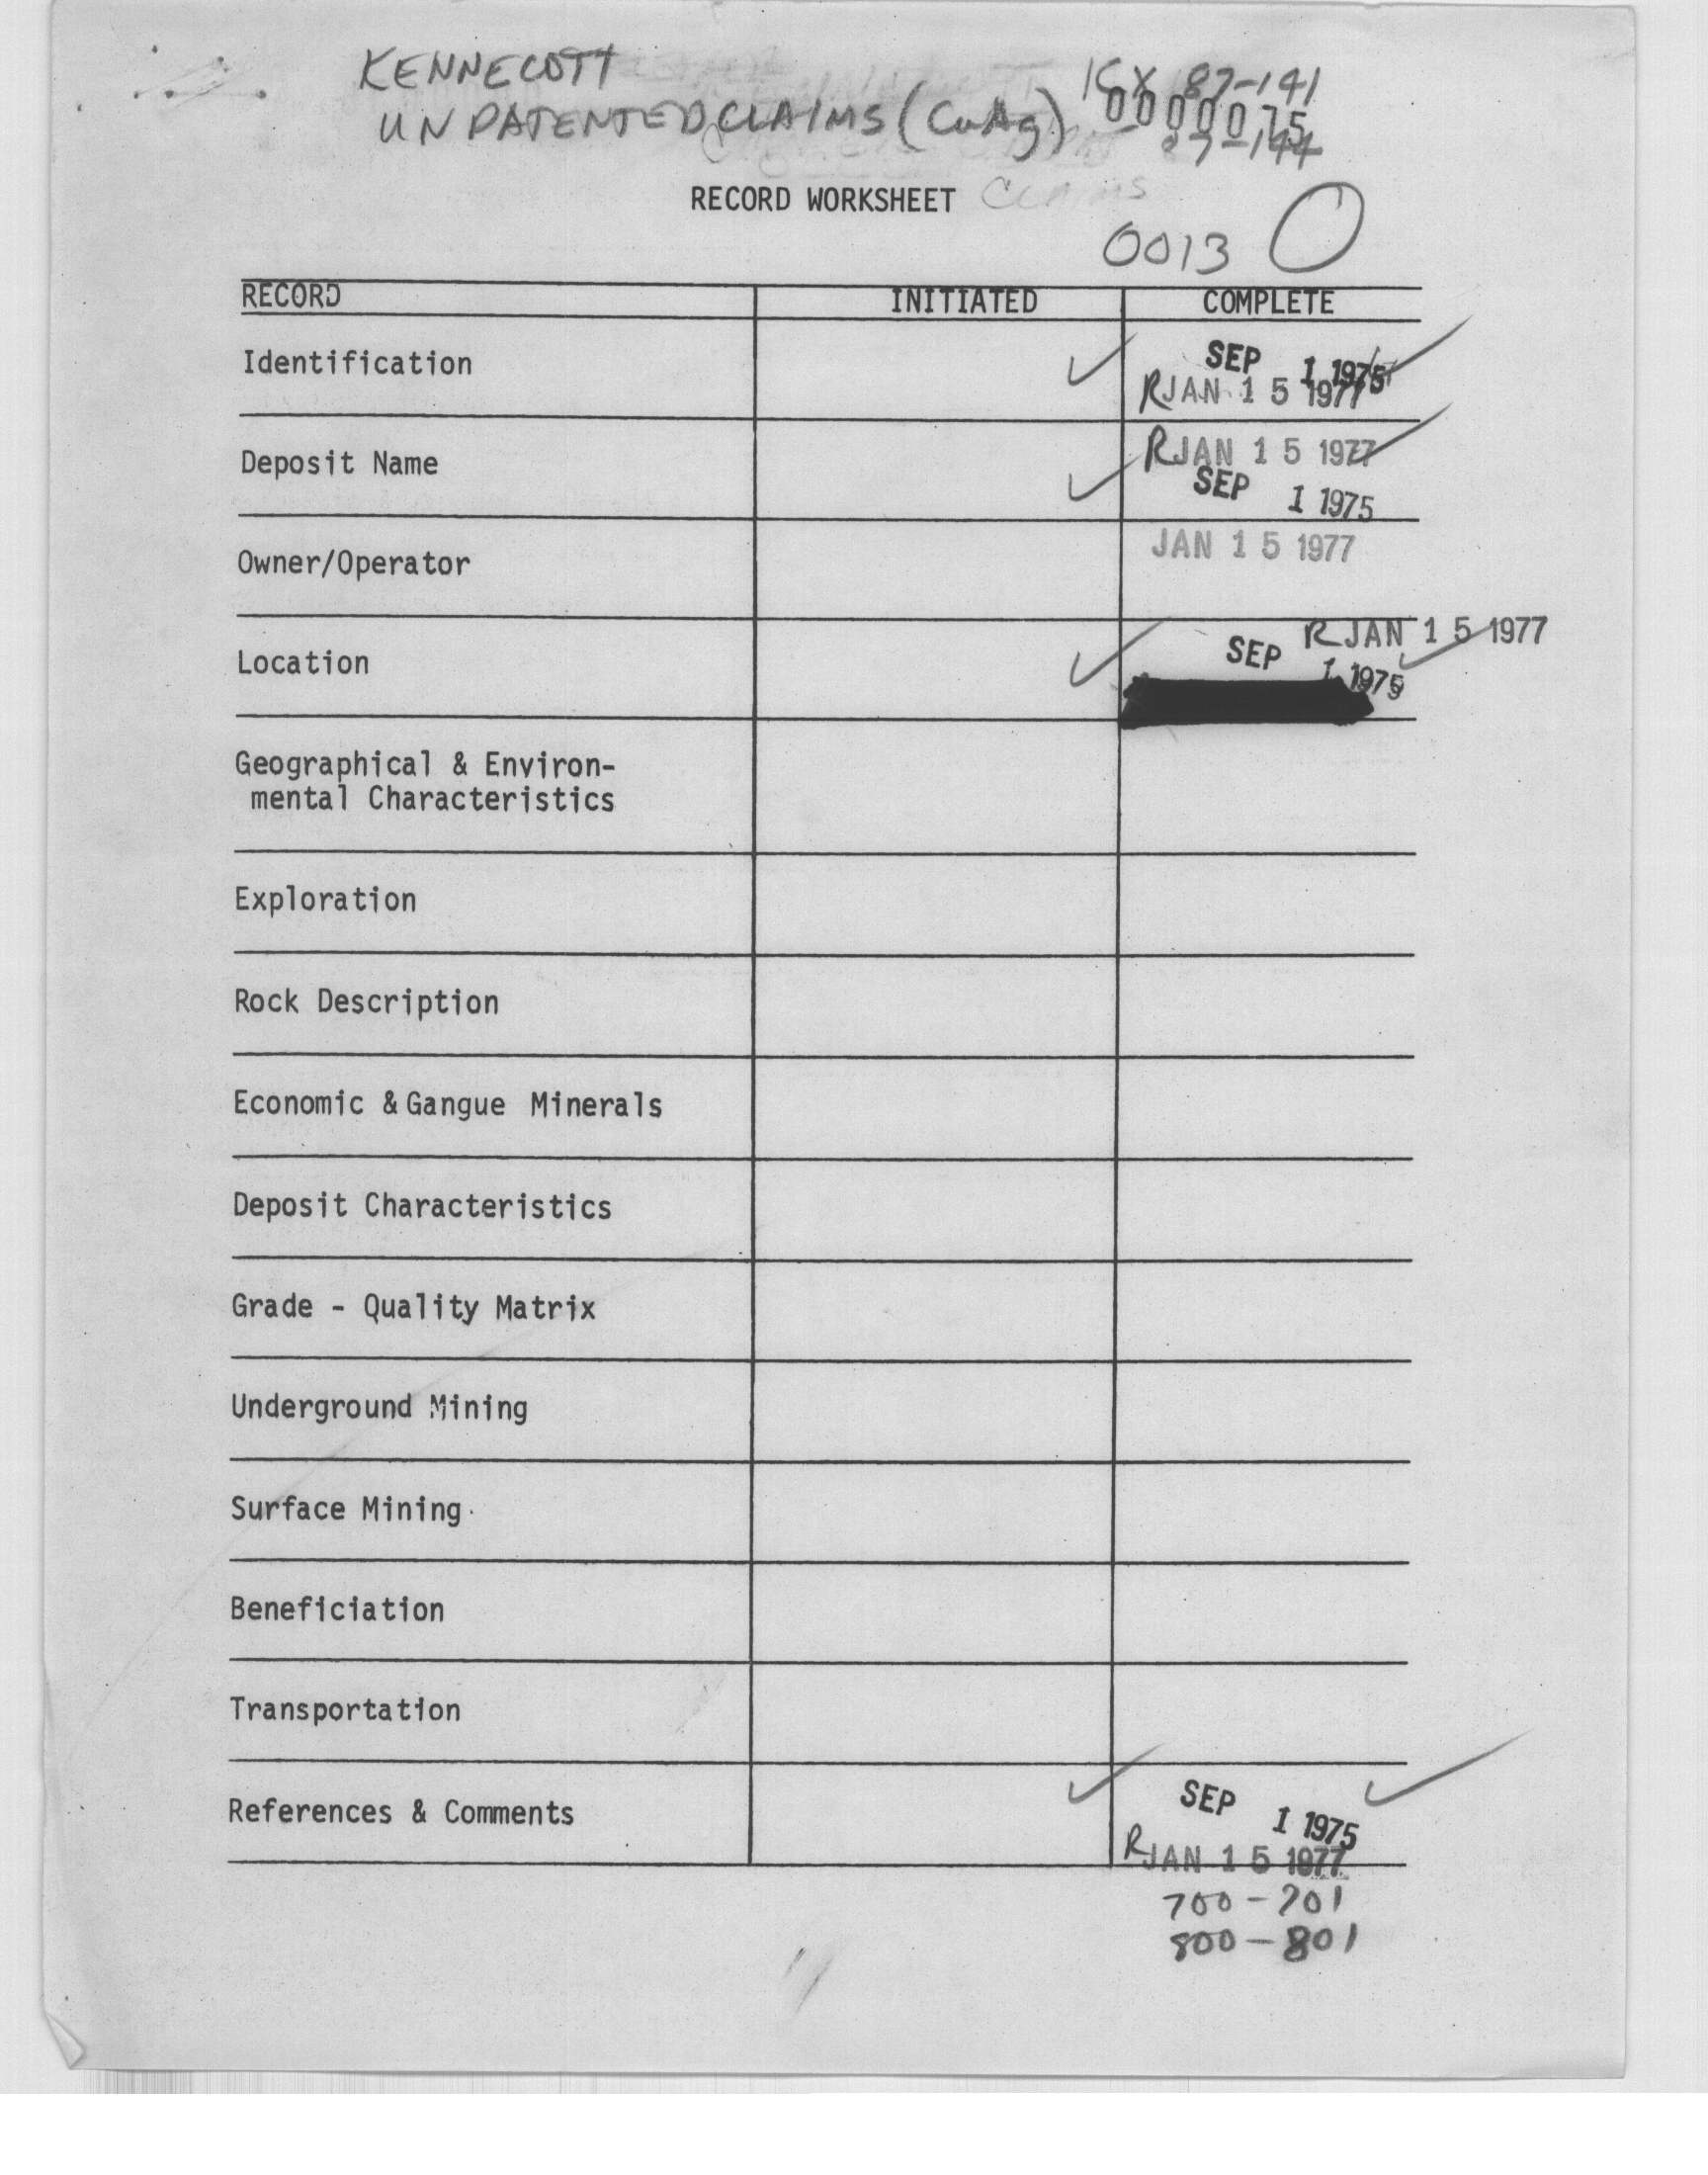 KENNECOTT
UNPATENTED CLAIMS (CuAg) 87-141
0000075
-144
RECORD WORKSHEET CLAIMS
0013 O
RECORD INITIATED COMPLETE
Identification ✓ SEP 1 1975 ✓
R JAN 15 1977
Deposit Name ✓ R JAN 15 1977 ✓
SEP 1 1975
Owner/Operator JAN 15 1977
Location ✓ SEP 1 1975 R JAN 15 1977 ✓
Geographical & Environ-
mental Characteristics
Exploration
Rock Description
Economic & Gangue Minerals
Deposit Characteristics
Grade - Quality Matrix
Underground Mining
Surface Mining
Beneficiation
Transportation
References & Comments ✓ SEP 1 1975 ✓
R JAN 15 1977
700-701
800-801